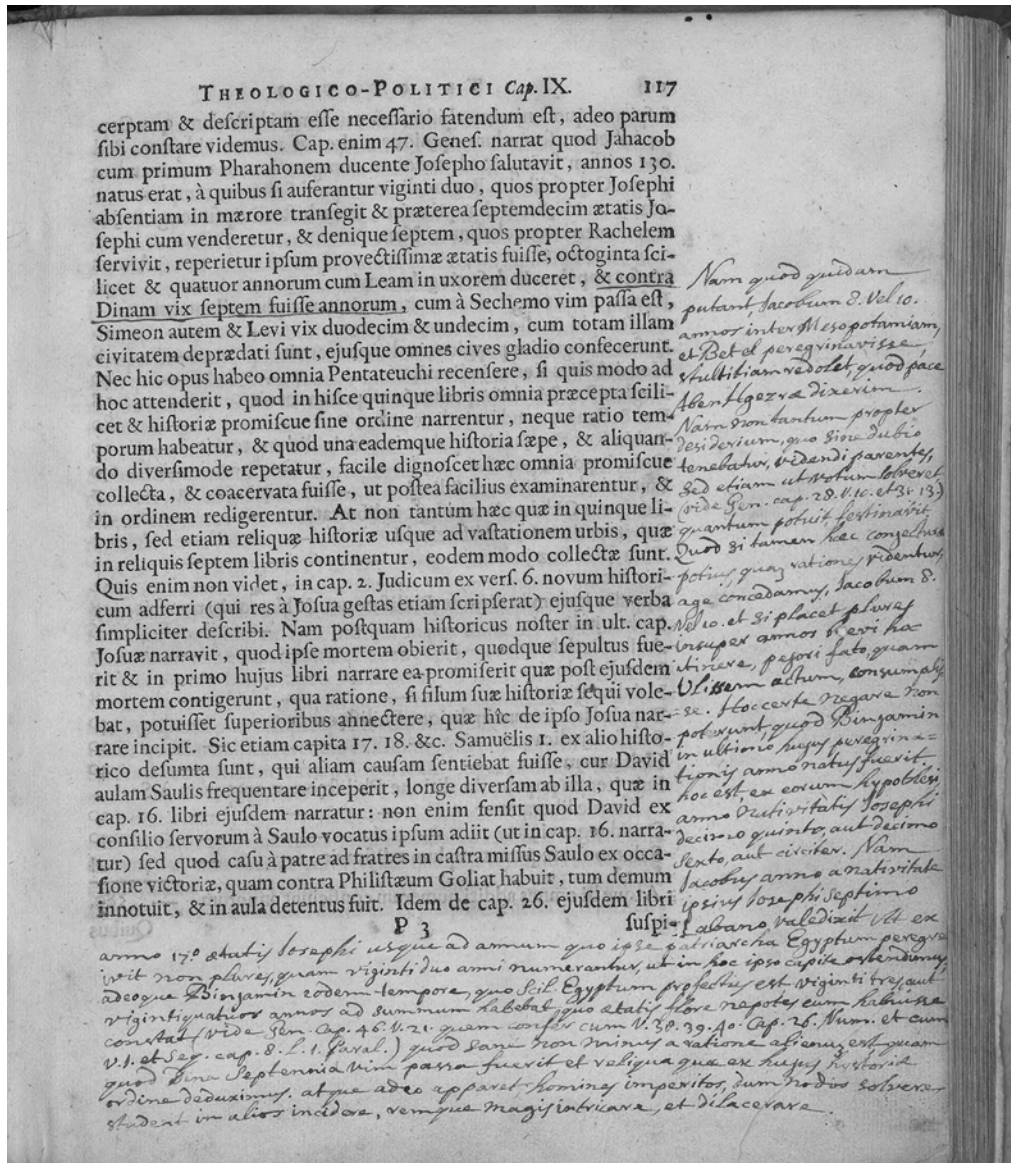 THEOLOGICO-POLITICI Cap. IX. 117
cerptam & descriptam esse necessario fatendum est, adeo parum
sibi constare videmus. Cap. enim 47. Genes. narrat quod Jahacob
cum primum Pharahonem ducente Josepho salutavit, annos 130.
natus erat, à quibus si auferantur viginti duo, quos propter Josephi
absentiam in mærore transegit & præterea septemdecim ætatis Jo-
sephi cum venderetur, & denique septem, quos propter Rachelem
servivit, reperietur ipsum provectissimæ ætatis fuisse, octoginta sci-
licet & quatuor annorum cum Leam in uxorem duceret, & contra
Dinam vix septem fuisse annorum, cum à Sechemo vim passa est,
Simeon autem & Levi vix duodecim & undecim, cum totam illam
civitatem deprædati sunt, ejusque omnes cives gladio confecerunt.
Nec hic opus habeo omnia Pentateuchi recensere, si quis modo ad
hoc attenderit, quod in hisce quinque libris omnia præcepta scili-
cet & historiæ promiscue sine ordine narrentur, neque ratio tem-
porum habeatur, & quod una eademque historia sæpe, & aliquan-
do diversimode repetatur, facile dignoscet hæc omnia promiscue
collecta, & coacervata fuisse, ut postea facilius examinarentur, &
in ordinem redigerentur. At non tantum hæc quæ in quinque li-
bris, sed etiam reliquæ historiæ usque ad vastationem urbis, quæ
in reliquis septem libris continentur, eodem modo collectæ sunt.
Quis enim non videt, in cap. 2. Judicum ex vers. 6. novum histori-
cum adferri (qui res à Josua gestas etiam scripserat) ejusque verba
simpliciter describi. Nam postquam historicus noster in ult. cap.
Josuæ narravit, quod ipse mortem obierit, quodque sepultus fue-
rit & in primo hujus libri narrare ea promiserit quæ post ejusdem
mortem contigerunt, qua ratione, si filum suæ historiæ sequi vole-
bat, potuisset superioribus annectere, quæ hîc de ipso Josua nar-
rare incipit. Sic etiam capita 17. 18. &c. Samuëlis 1. ex alio histo-
rico desumta sunt, qui aliam causam sentiebat fuisse, cur David
aulam Saulis frequentare inceperit, longe diversam ab illa, quæ in
cap. 16. libri ejusdem narratur: non enim sensit quod David ex
consilio servorum à Saulo vocatus ipsum adiit (ut in cap. 16. narra-
tur) sed quod casu à patre ad fratres in castra missus Saulo ex occa-
sione victoriæ, quam contra Philistæum Goliat habuit, tum demum
innotuit, & in aula detentus fuit. Idem de cap. 26. ejusdem libri
P 3 suspi-
Nam quod quidam
putant, Jacobum 8. vel 10.
annos inter Mesopotamiam,
et Betel peregrinavisse,
stultitiam redolet, quod pace
Aben Hgezræ dixerim.
Nam non tantum propter
desiderium, quo sine dubio
tenebatur, videndi parentes,
sed etiam ut votum solveret
(vide Gen. cap. 28. v. 10. et 31. 13.)
quantum potuit festinavit
Quod si tamen hæc conjecturæ
potius quam rationes videntur,
age concedamus, Jacobum 8.
vel 10. et si placet plures
insuper annos brevi hoc
itinere, pejori fato, quam
Ulissem actum, consumpsis-
se. Hoc certe negare non
poterunt, quod Binjamin
in ultimo hujus peregrina-
tionis anno natus fuerit
hoc est, ex eorum hypothesi,
anno nativitatis Josephi
decimo quinto, aut decimo
sexto, aut circiter. Nam
Jacobus anno a nativitate
ipsius Josephi septimo
Labano valedixit. At ex
anno 17º ætatis Josephi usque ad annum quo ipse patriarcha Egyptum peregre
ivit non plures, quam viginti duo anni numerantur, ut in hoc ipso capite ostendimus,
adeoque Binjamin eodem tempore, quo scil. Egyptum profectus est viginti tres, aut
vigintiquatuor annos ad summum habebat, quo etatis flore nepotes eum habuisse
constat (vide Gen. Cap. 46. v. 21. quem confer cum v. 38. 39. 40. Cap. 26. Num. et cum
v. 1. et Seq. cap. 8. L. 1. Paral.) quod sane non minus a ratione alienum est, quam
quod Dina septennis vim passa fuerit et reliqua quæ ex hujus historiæ
ordine deduximus. atque adeo apparet, homines imperitos, dum nodos solvere
student in alios incidere, remque magis intricare, et dilacerare.